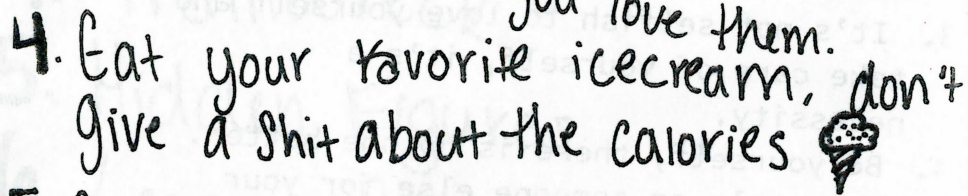 you love them.
4. Eat your favorite icecream, don't
give a shit about the calories